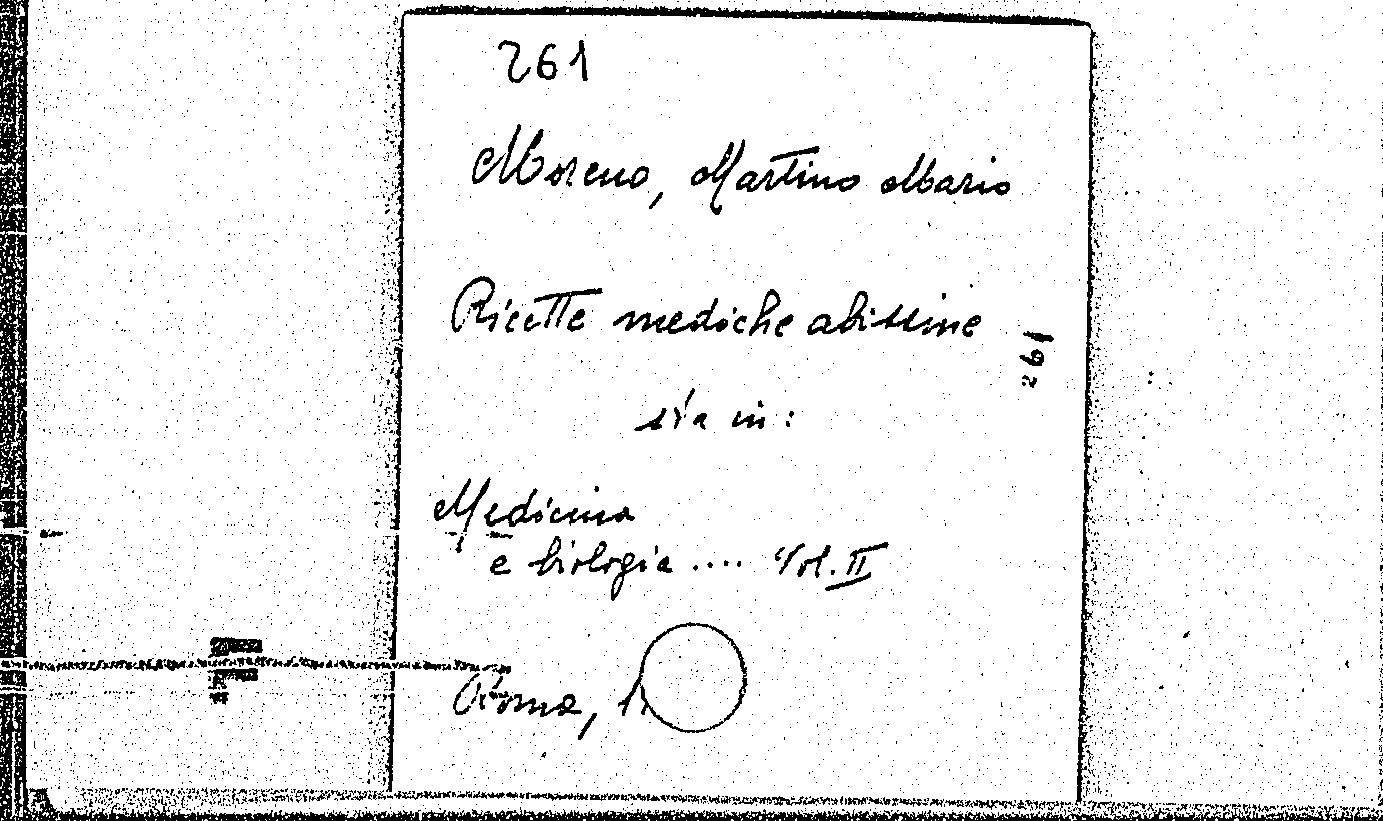 261
Moreno, Martino Mario
Ricette mediche abissine
261
sta in:
Medicina
e biologia .... Vol. II
Roma,